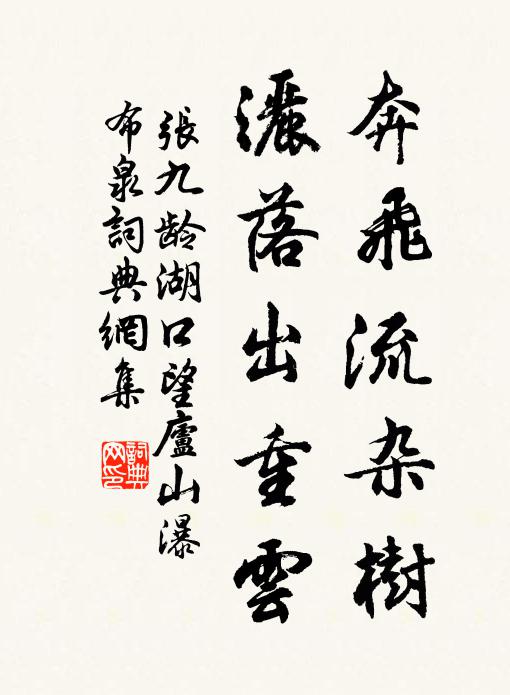 奔飛流杂樹
灑落出重雲
張九龄湖口望廬山瀑
布泉詞典網集
詞典
网印